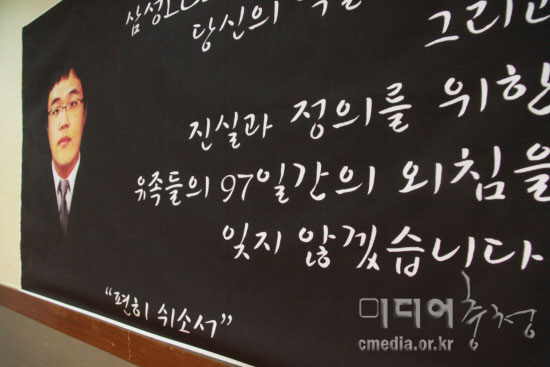 당신의
그리고
진실과 정의를 위한
유족들의 97일간의 외침을
잊지 않겠습니다
“편히 쉬소서”
미디어충청
cmedia.or.kr